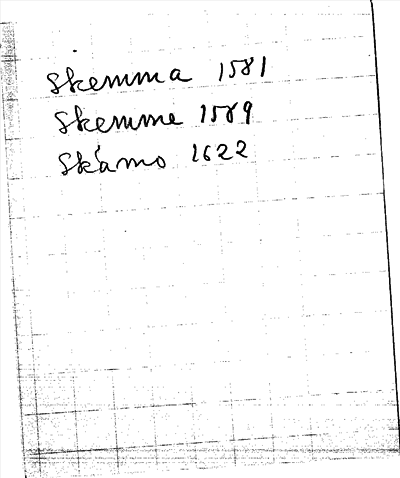 Skemma 1581
Skemme 1589
Skåmo 1622